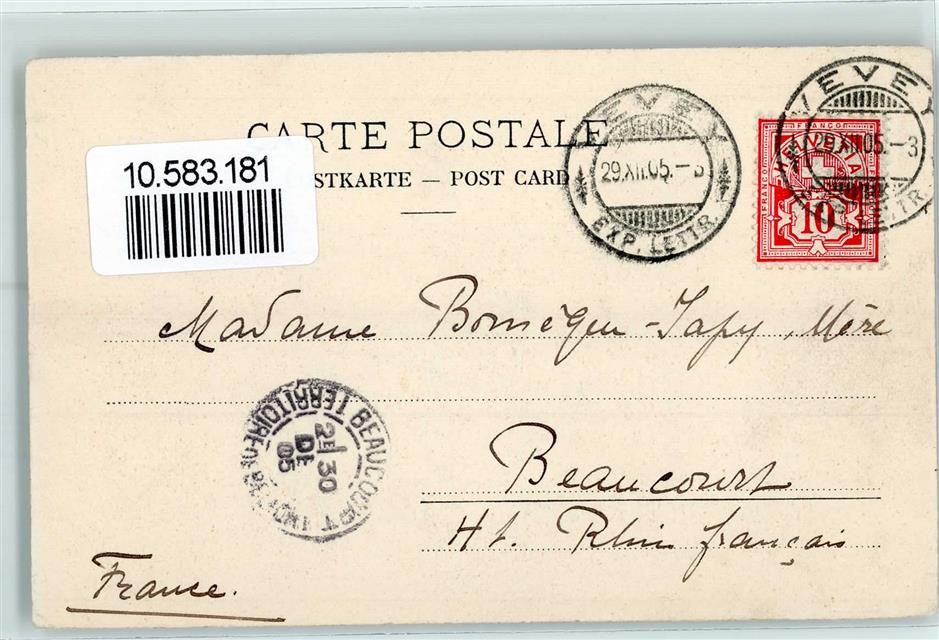 10.583.181
CARTE POSTALE
POSTKARTE — POST CARD
VEVEY
29.XII.05.-3
EXP. LETTR.
VEVEY
29.XII.05.-3
LETTR.
FRANCO
FRANCO
HELVETIA
10
Madame Bornèque-Japy, Mère
BEAUCOURT
TERRITOIRE DE
2E 30
DE
05
Beaucourt
Ht. Rhin français
France.